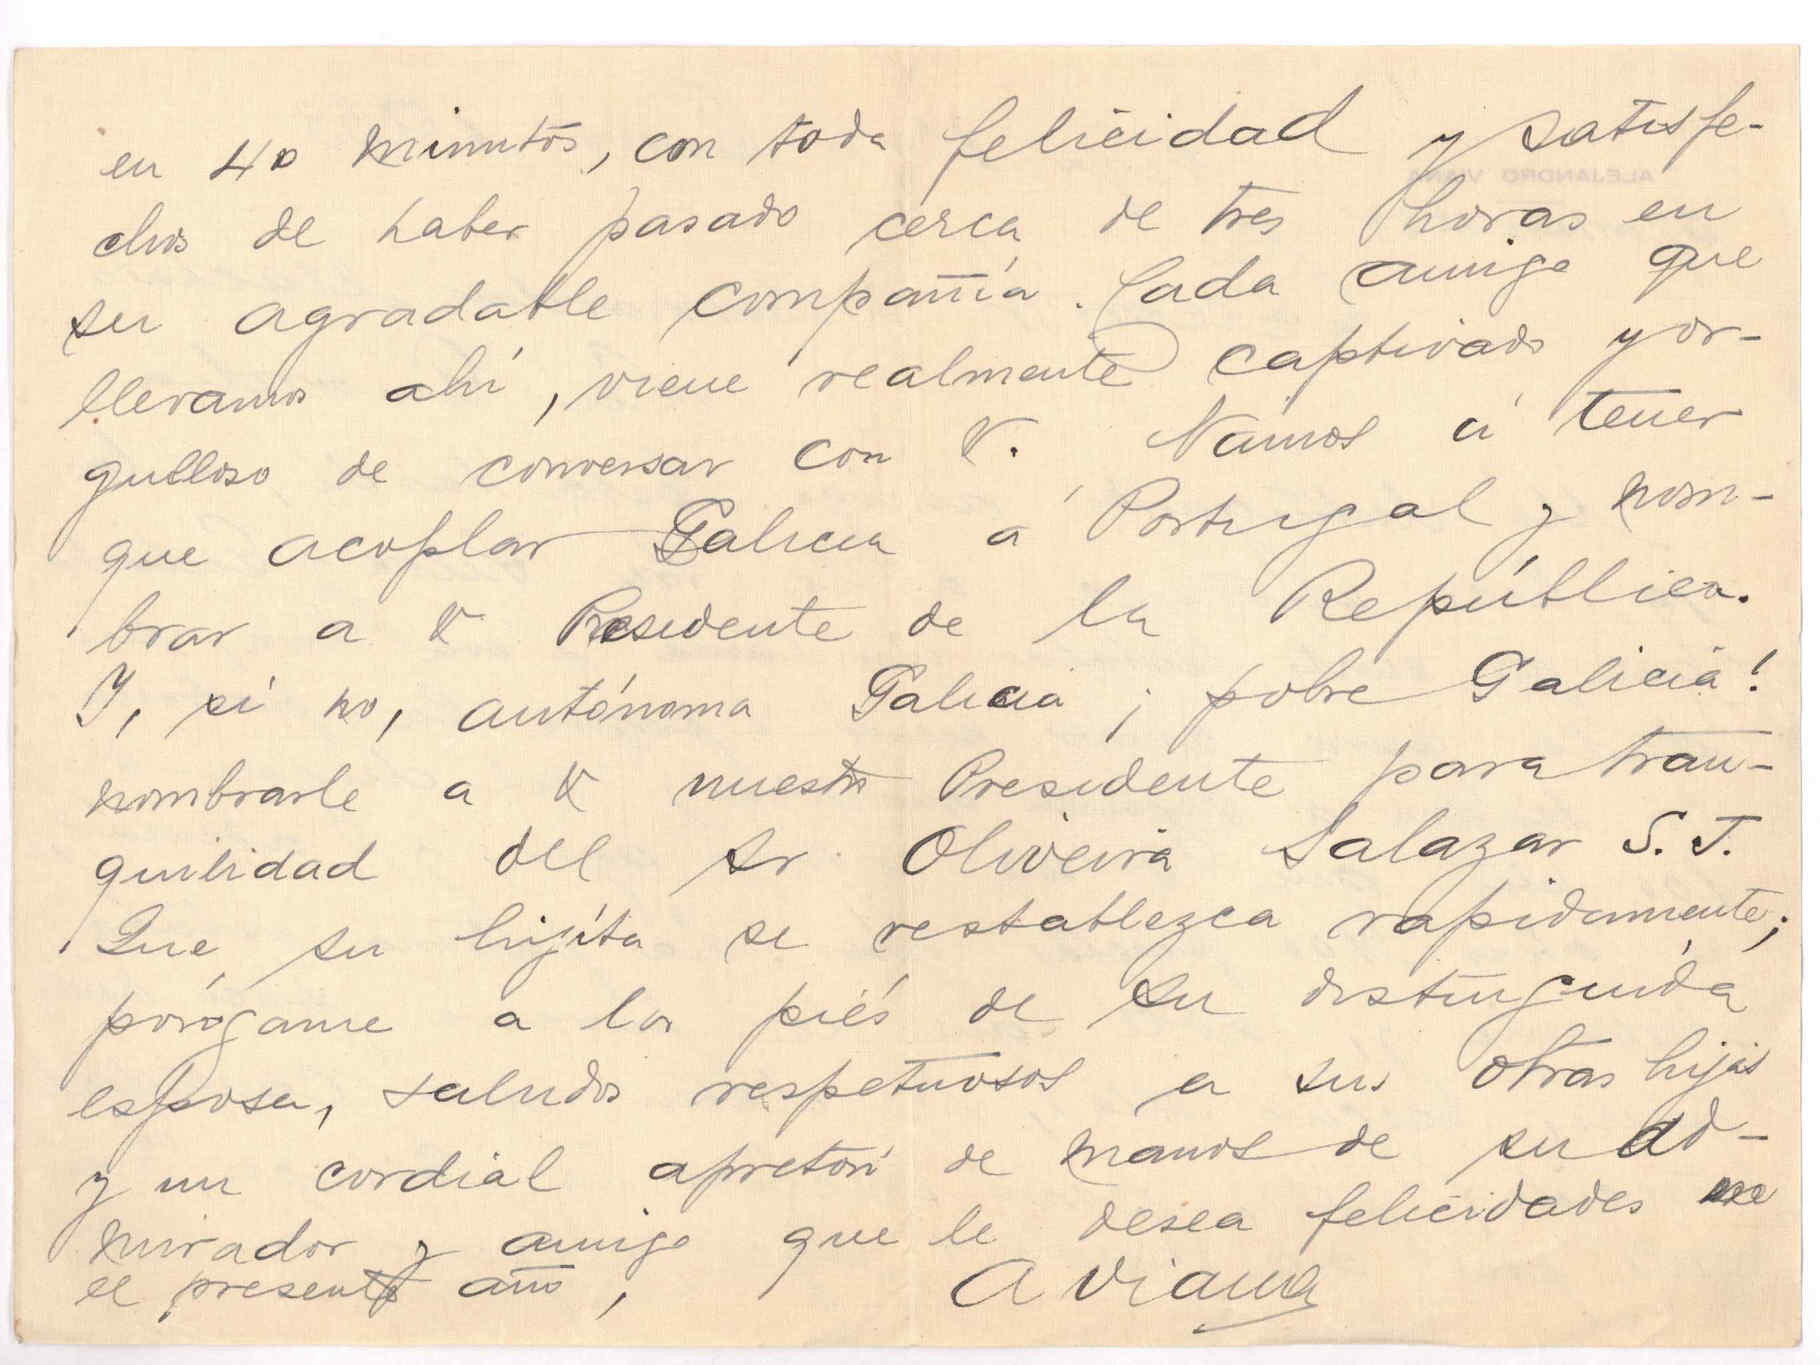 en 40 minutos, con toda felicidad y satisfe-
chos de haber pasado cerca de tres horas en
su agradable compañía. Cada amigo que
llevamos ahí, viene realmente captivado y or-
gulloso de conversar con V. Vamos á tener
que acoplar Galicia á Portugal y nom-
brar a V Presidente de la República.
Y, si no, autónoma Galicia ¡pobre Galicia!
nombrarle a V nuestro Presidente para tran-
quilidad del Sr. Oliveira Salazar S. J.
Que su hijíta se restablezca rapidamente;
pórgame a los piés de su distinguida
esposa, saludos respetuosos a sus otras hijas
y un cordial apretón de manos de su ad-
mirador y amigo que le desea felicidades en
el presente año,
A Viana
ALEJANDRO VIANA